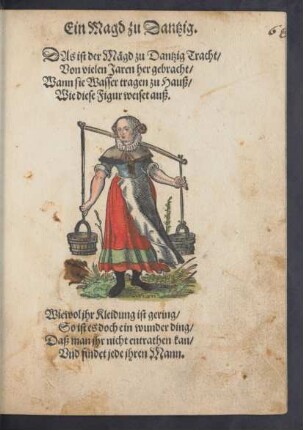 Ein Magd zu Dantzig.
68
DAs ist der Mägd zu Dantzig Tracht/
Von vielen Jaren her gebracht/
Wann sie Wasser tragen zu Hauß/
Wie diese Figur weiset auß.
Wiewol jhr Kleidung ist gering/
So ist es doch ein wunder ding/
Daß man jhr nicht entrathen kan/
Vnd findet jede jhren Mann.